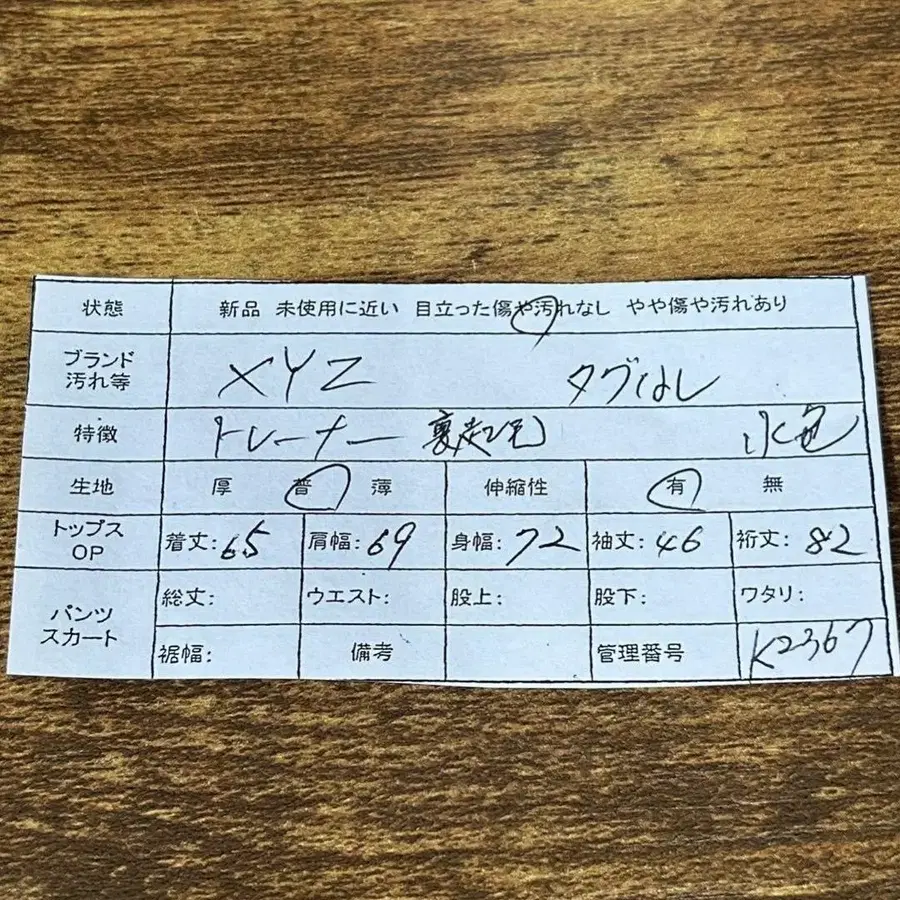 状態 新品 未使用に近い 目立った傷や汚れなし やや傷や汚れあり
ブランド
汚れ等 XYZ タグなし
特徴 トレーナー 裏起毛 水色
生地 厚 普 薄 伸縮性 有 無
トップス
OP 着丈:65 肩幅:69 身幅:72 袖丈:46 裄丈:82
パンツ
スカート 総丈: ウエスト: 股上: 股下: ワタリ:
裾幅: 備考 管理番号 K2367